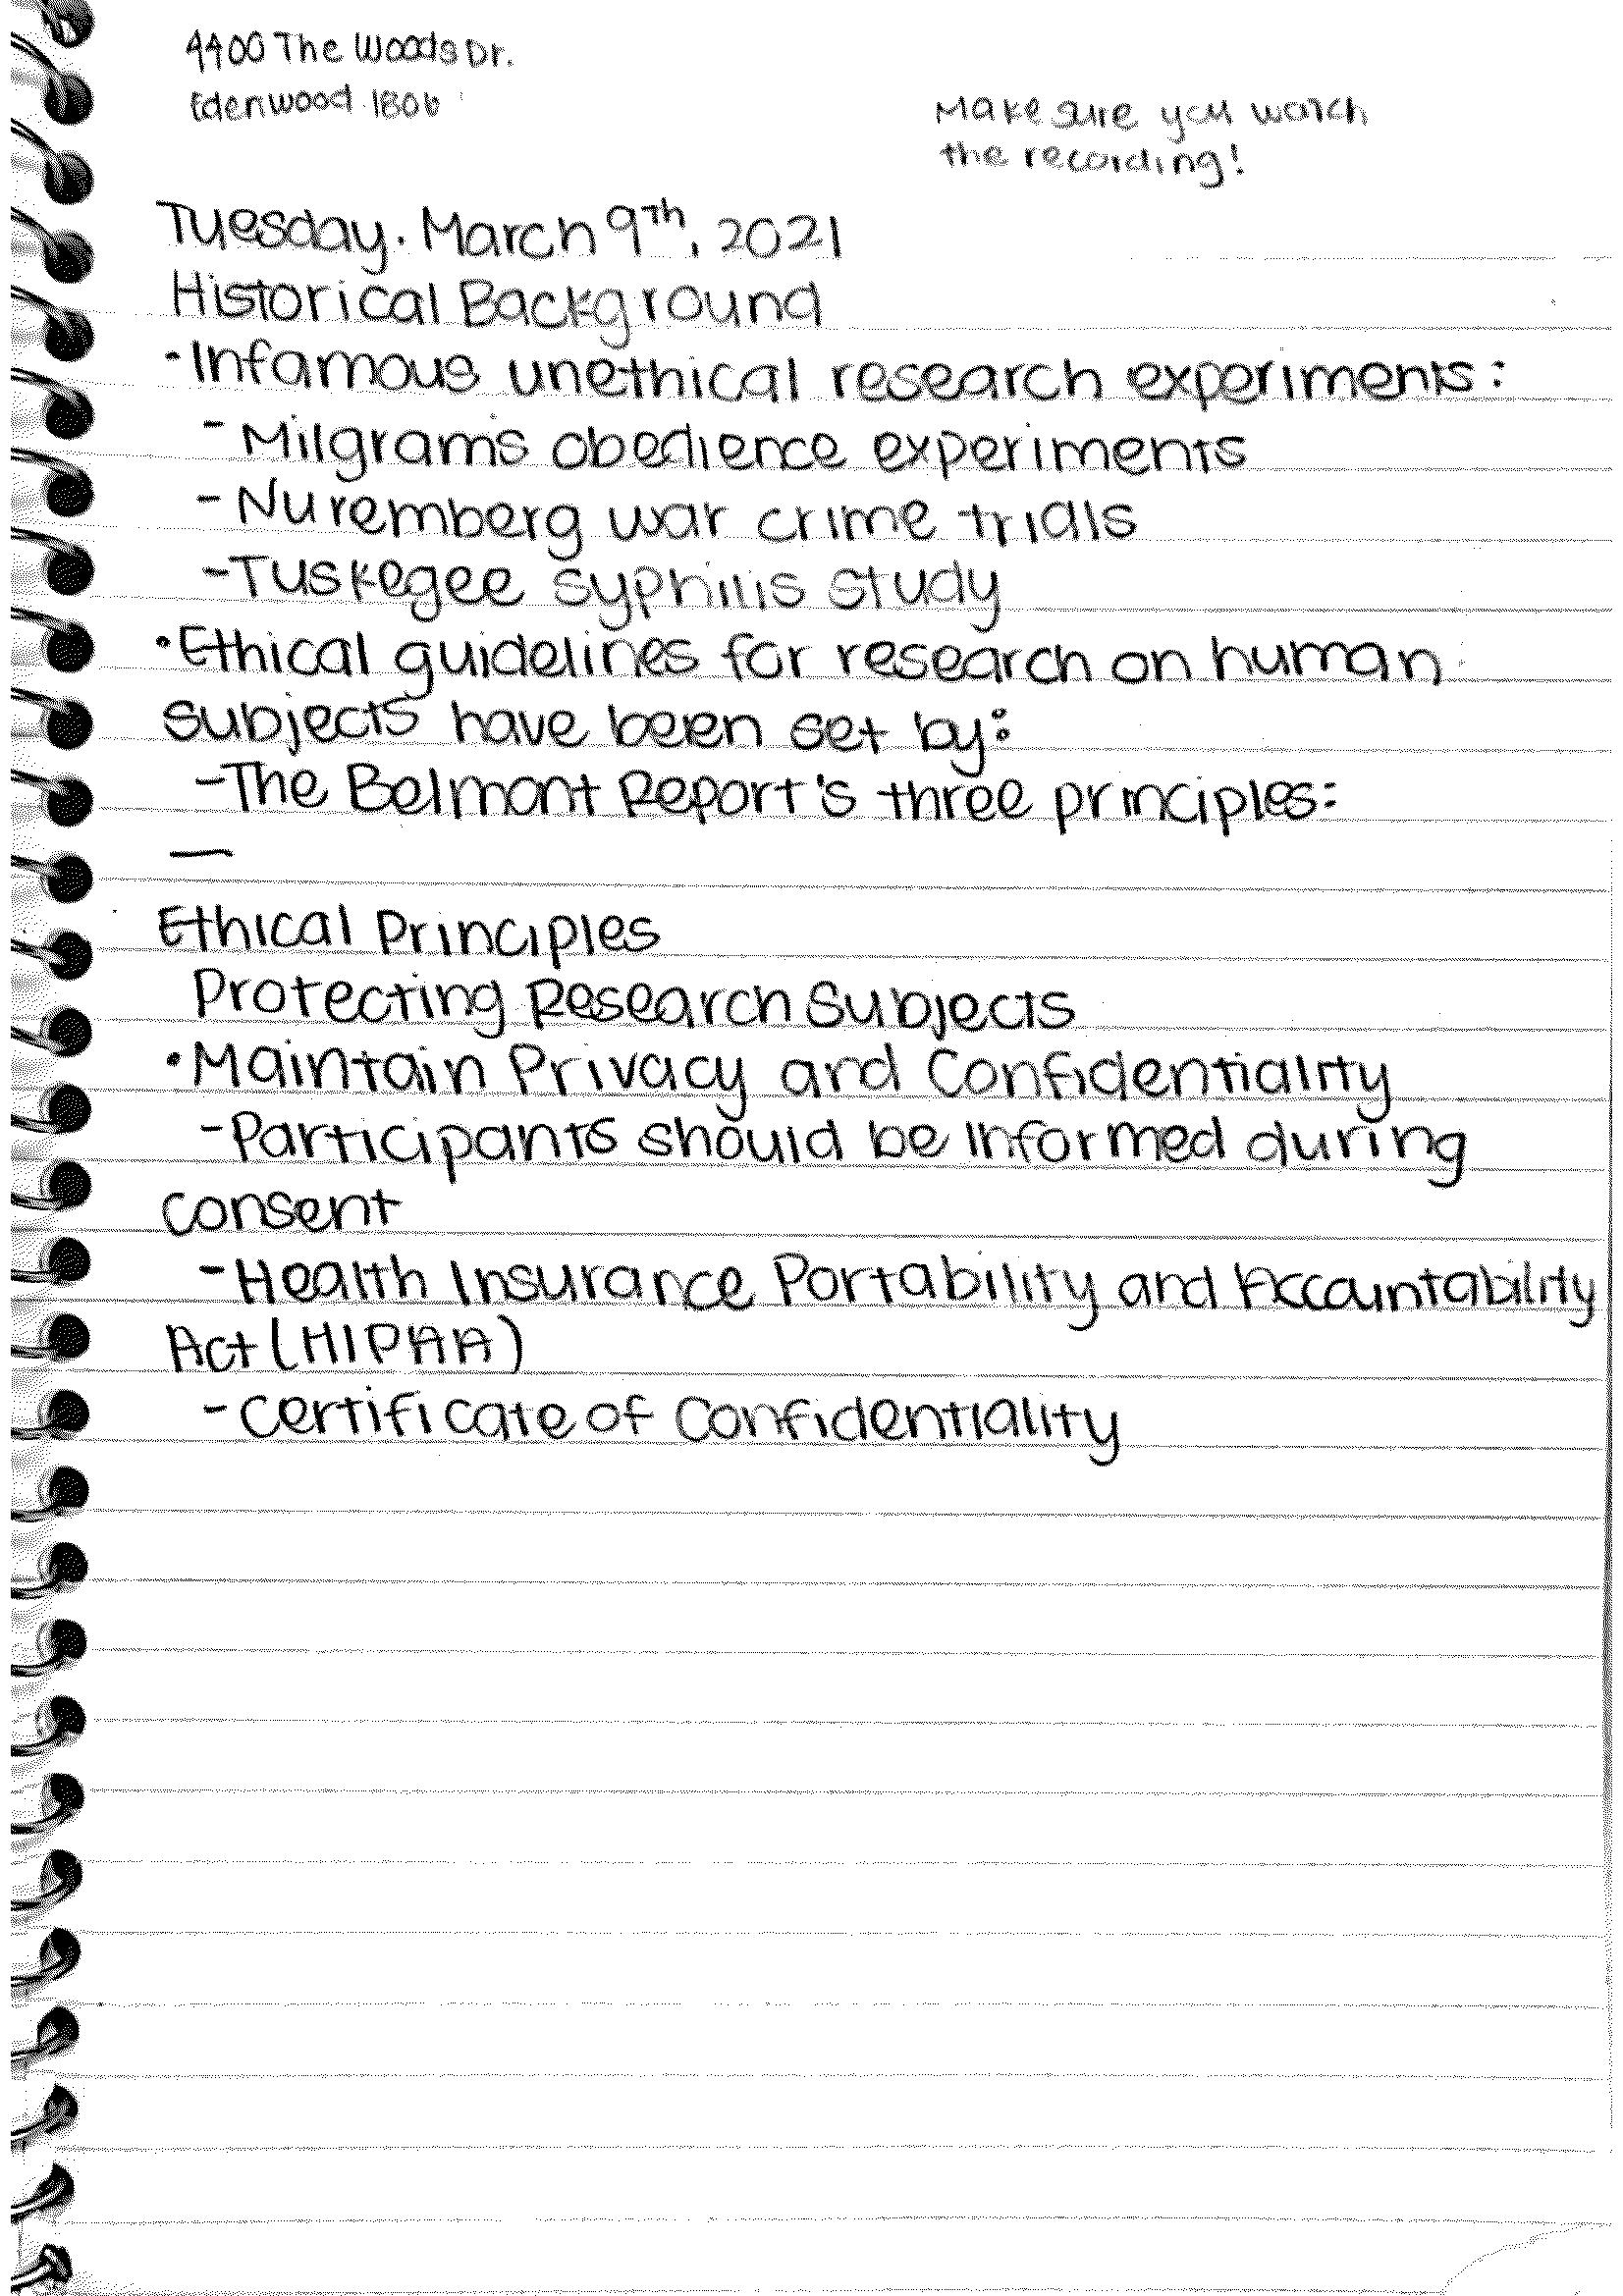 4400 The Woods Dr.
Edenwood 1806
Make sure you watch
the recording!
Tuesday. March 9th, 2021
Historical Background
•Infamous unethical research experiments:
- Milgram's obedience experiments
- Nuremberg war crime trials
-Tuskegee syphilis study
•Ethical guidelines for research on human
subjects have been set by:
-The Belmont Report's three principles:
—
Ethical Principles
Protecting Research Subjects
•Maintain Privacy and Confidentiality
-Participants should be informed during
consent
-Health Insurance Portability and Accountability
Act (HIPAA)
- Certificate of Confidentiality